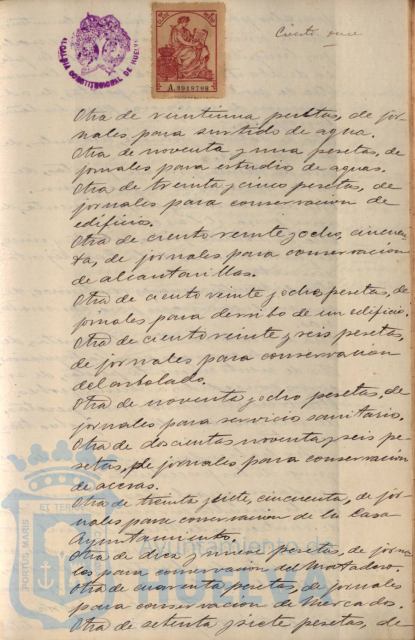 ALCALDIA CONSTITUCIONAL DE HUELVA
Ciento once
Otra de veintiuna pesetas, de jor-
nales para surtido de agua.
Otra de noventa y una pesetas, de
jornales para estudio de aguas.
Otra de treinta y cinco pesetas, de
jornales para conservacion de
edificio.
Otra de ciento veinte y ocho, cincuen-
ta, de jornales para conservacion
de alcantarillas.
Otra de ciento veinte y ocho pesetas, de
jornales para derribo de un edificio.
Otra de ciento veinte y seis pesetas,
de jornales para conservacion
del arbolado.
Otra de noventa y ocho pesetas, de
jornales para servicio sanitario.
Otra de doscientas noventa y seis pe
setas, de jornales para conservacion
de aceras.
Otra de treinta y siete, cincuenta, de jor-
nales para conservacion de la Casa
Ayuntamiento.
Otra de diez y nueve pesetas, de jorna
les para conservacion del Matadero.
Otra de cuarenta pesetas, de jornales
para conservacion de Mercados.
Otra de setenta y siete pesetas, de
PORTUS MARIS ET TERR
Ayuntamiento de
HUELVA